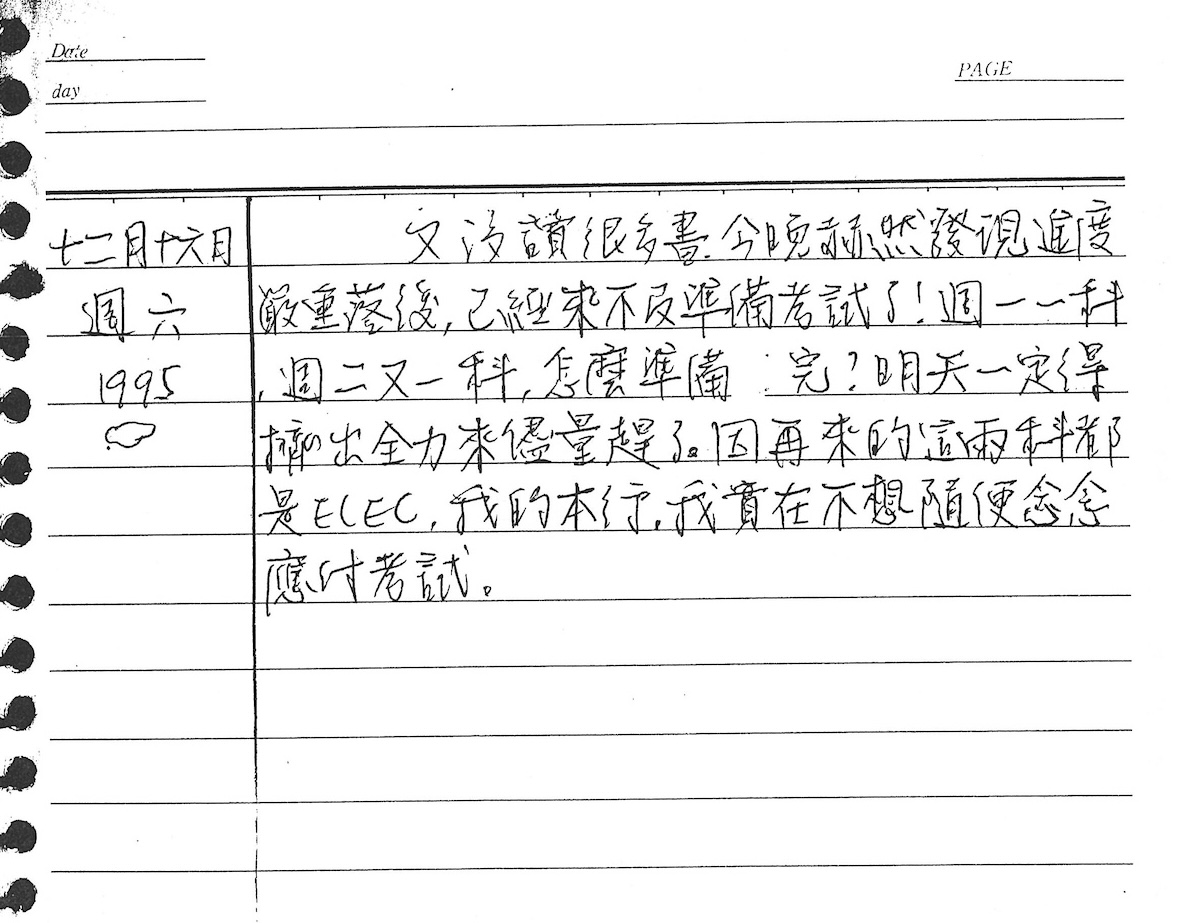 Date
day
PAGE
十二月十六日
週六
1995
又沒讀很多書.今晚赫然發現進度
嚴重落後,已經來不及準備考試了!週一一科
,週二又一科,怎麼準備 完?明天一定得
擠出全力來儘量趕了。因再來的這兩科都
是ELEC,我的本行,我實在不想隨便念念
應付考試。